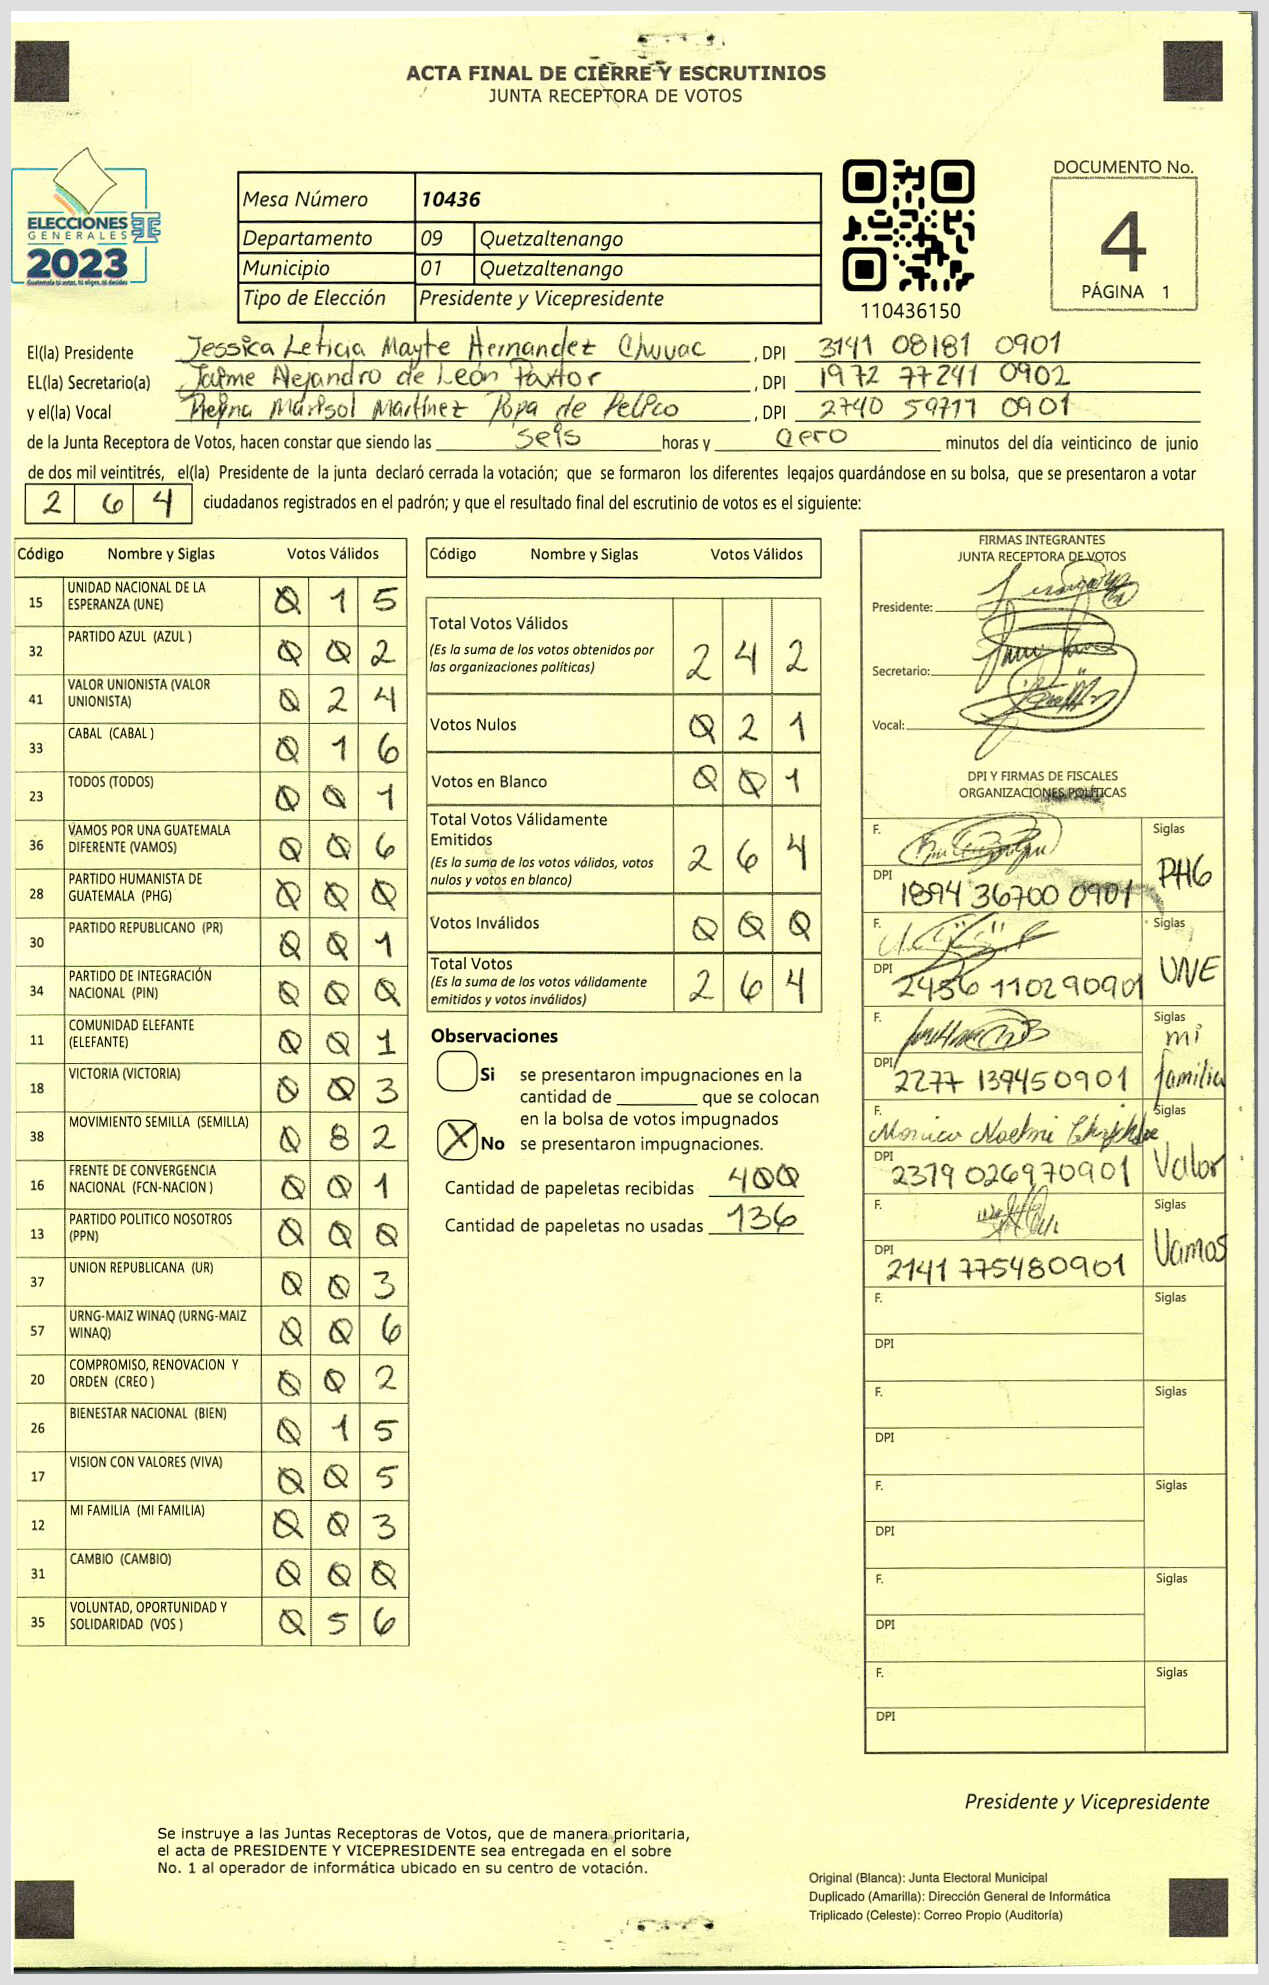 ACTA FINAL DE CIERRE Y ESCRUTINIOS
JUNTA RECEPTORA DE VOTOS
ELECCIONES
GENERALES
2023
Guatemala tú votas, tú eliges, tú decides
Mesa Número 10436
Departamento 09 Quetzaltenango
Municipio 01 Quetzaltenango
Tipo de Elección Presidente y Vicepresidente
110436150
DOCUMENTO No.
4
PÁGINA 1
El(la) Presidente Jessica Leticia Mayte Hernandez Chuvac , DPI 3141 08181 0901
EL(la) Secretario(a) Jaime Alejandro de León Pastor , DPI 1972 77241 0902
y el(la) Vocal Reyna Marisol Martínez Popa de Pelico , DPI 2740 59717 0901
de la Junta Receptora de Votos, hacen constar que siendo las seis horas y cero minutos del día veinticinco de junio
de dos mil veintitrés, el(la) Presidente de la junta declaró cerrada la votación; que se formaron los diferentes legajos quardándose en su bolsa, que se presentaron a votar
2 6 4 ciudadanos registrados en el padrón; y que el resultado final del escrutinio de votos es el siguiente:
Código Nombre y Siglas Votos Válidos
15 UNIDAD NACIONAL DE LA ESPERANZA (UNE) 0 1 5
32 PARTIDO AZUL (AZUL ) 0 0 2
41 VALOR UNIONISTA (VALOR UNIONISTA) 0 2 4
33 CABAL (CABAL ) 0 1 6
23 TODOS (TODOS) 0 0 1
36 VAMOS POR UNA GUATEMALA DIFERENTE (VAMOS) 0 0 6
28 PARTIDO HUMANISTA DE GUATEMALA (PHG) 0 0 0
30 PARTIDO REPUBLICANO (PR) 0 0 1
34 PARTIDO DE INTEGRACIÓN NACIONAL (PIN) 0 0 0
11 COMUNIDAD ELEFANTE (ELEFANTE) 0 0 1
18 VICTORIA (VICTORIA) 0 0 3
38 MOVIMIENTO SEMILLA (SEMILLA) 0 8 2
16 FRENTE DE CONVERGENCIA NACIONAL (FCN-NACION ) 0 0 1
13 PARTIDO POLITICO NOSOTROS (PPN) 0 0 0
37 UNION REPUBLICANA (UR) 0 0 3
57 URNG-MAIZ WINAQ (URNG-MAIZ WINAQ) 0 0 6
20 COMPROMISO, RENOVACION Y ORDEN (CREO ) 0 0 2
26 BIENESTAR NACIONAL (BIEN) 0 1 5
17 VISION CON VALORES (VIVA) 0 0 5
12 MI FAMILIA (MI FAMILIA) 0 0 3
31 CAMBIO (CAMBIO) 0 0 0
35 VOLUNTAD, OPORTUNIDAD Y SOLIDARIDAD (VOS ) 0 5 6
Código Nombre y Siglas Votos Válidos
Total Votos Válidos 2 4 2
(Es la suma de los votos obtenidos por
las organizaciones políticas)
Votos Nulos 0 2 1
Votos en Blanco 0 0 1
Total Votos Válidamente
Emitidos 2 6 4
(Es la suma de los votos válidos, votos
nulos y votos en blanco)
Votos Inválidos 0 0 0
Total Votos 2 6 4
(Es la suma de los votos válidamente
emitidos y votos inválidos)
Observaciones
Si se presentaron impugnaciones en la
cantidad de ________ que se colocan
en la bolsa de votos impugnados
X No se presentaron impugnaciones.
Cantidad de papeletas recibidas 400
Cantidad de papeletas no usadas 136
FIRMAS INTEGRANTES
JUNTA RECEPTORA DE VOTOS
Presidente:
Secretario:
Vocal:
DPI Y FIRMAS DE FISCALES
ORGANIZACIONES POLÍTICAS
F. Siglas
DPI 1894 36700 0901 PHG
F. Siglas
DPI 2456 110290901 UNE
F. Siglas
DPI 2277 139450901 mi familia
F. Monica Noemi Siglas
DPI 2379 026970901 Valor
F. Siglas
DPI 2141 775480901 Vamos
F. Siglas
DPI
F. Siglas
DPI
F. Siglas
DPI
F. Siglas
DPI
F. Siglas
DPI
Presidente y Vicepresidente
Se instruye a las Juntas Receptoras de Votos, que de manera prioritaria,
el acta de PRESIDENTE Y VICEPRESIDENTE sea entregada en el sobre
No. 1 al operador de informática ubicado en su centro de votación.
Original (Blanca): Junta Electoral Municipal
Duplicado (Amarilla): Dirección General de Informática
Triplicado (Celeste): Correo Propio (Auditoría)